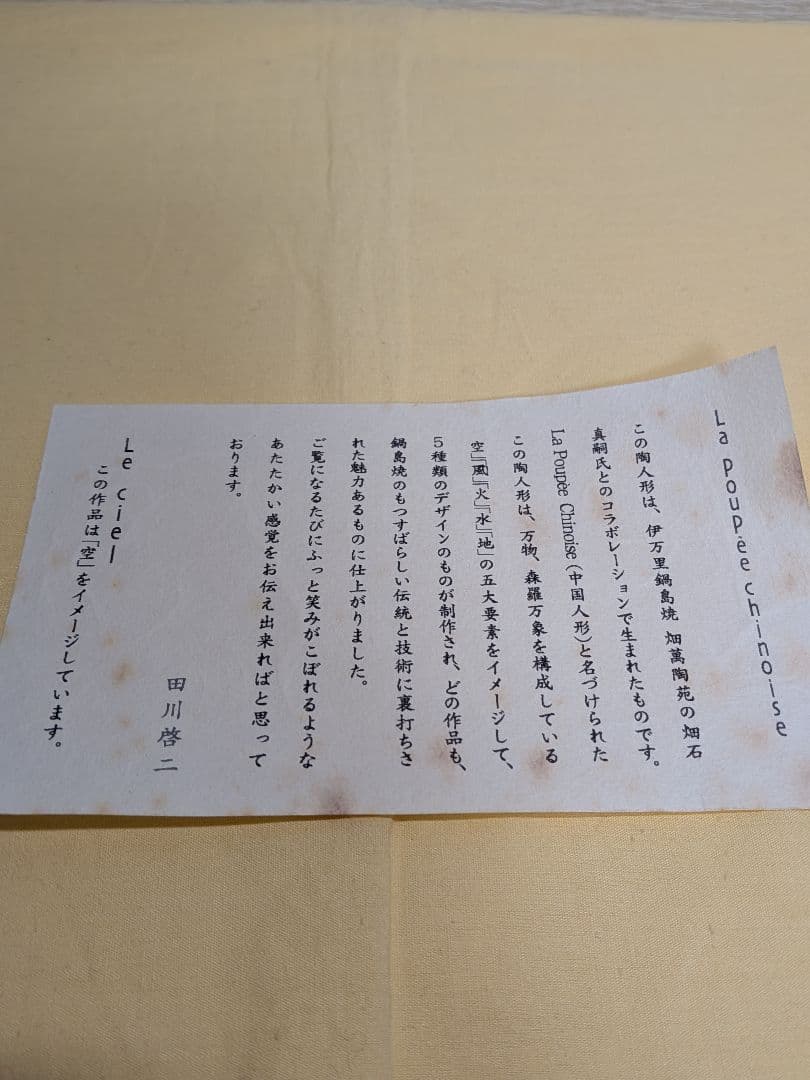 La poupèe chinoise
この陶人形は、伊万里鍋島焼 畑萬陶苑の畑石
真嗣氏とのコラボレーションで生まれたものです。
La Poupée Chinoise(中国人形)と名づけられた
この陶人形は、万物、森羅万象を構成している
空』『風』『火』『水』『地』の五大要素をイメージして、
5種類のデザインのものが制作され、どの作品も、
鍋島焼のもつすばらしい伝統と技術に裏打ちさ
れた魅力あるものに仕上がりました。
ご覧になるたびにふっと笑みがこぼれるような
あたたかい感覚をお伝え出来ればと思って
おります。
田川啓二
Le ciel
この作品は「空」をイメージしています。